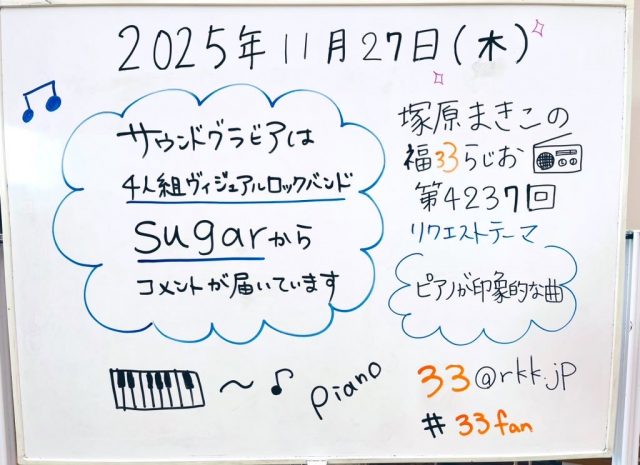 2025年11月27日(木)
サウンドグラビアは
4人組ヴィジュアルロックバンド
sugarから
コメントが届いています
塚原まきこの
福33らじお
第4237回
リクエストテーマ
ピアノが印象的な曲
〜♪ piano
33@rkk.jp
#33fan